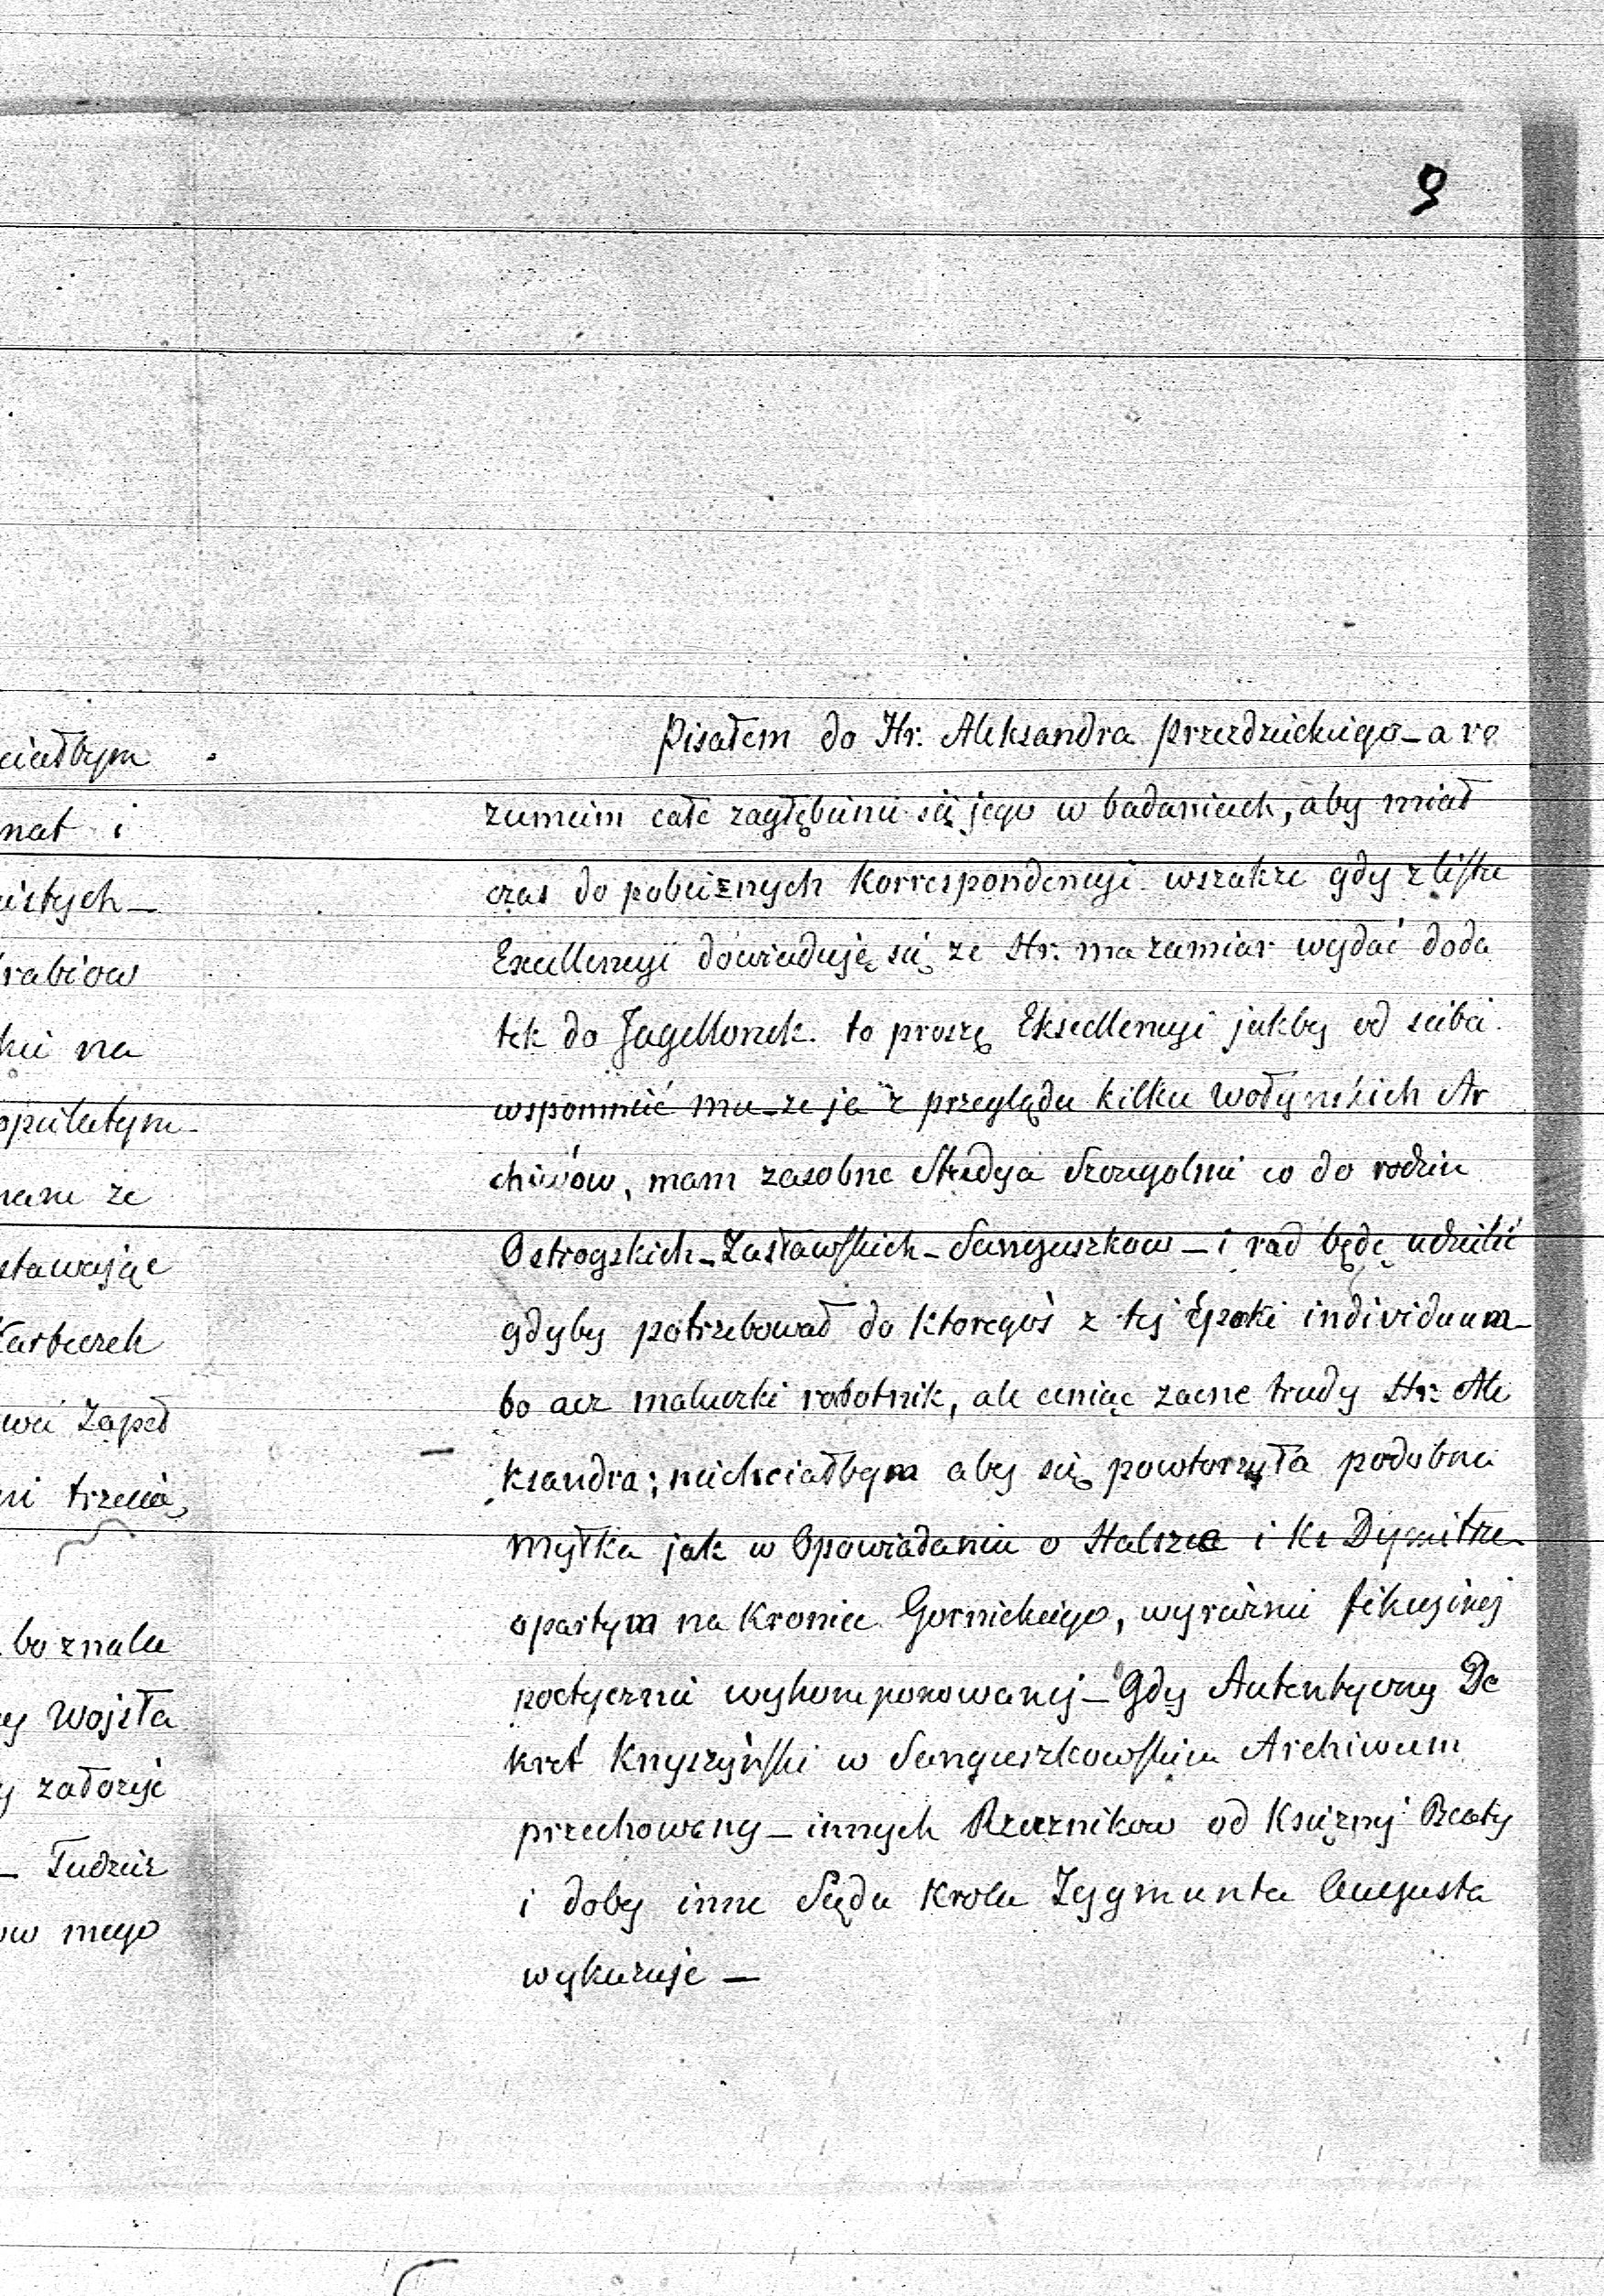 9
ciałbym
nat i
istych_
rabiow
kie na
opulatym_
mam ze
stawając
Karteczek
wei Zapeł
ni trzecią,
bo znale
y Wojsła
y założyć
_ Tudzież
ow mego
Pisałem do Hr. Aleksandra Przezdzieckiego_a ro
zumiem całe zagłębienie się jego w badaniach, aby miał
czas do pobieznych Korrespondencyi. wszakze gdy z listu
Excellencyi dowiaduję się ze Hr. ma zamiar wydać doda
tek do Jagellonek. to proszę Eksellencyi jakby od siebie
wspomnieć mu_ze ja z przeglądu kilku Wołyńskich Ar
chiwów, mam zasobne Studya Szczegolnie co do rodzin
Ostrogskich_Zasławskich_Sanguszkow_i rad będę udzielić
gdyby potrzebował do ktoregoś z tej Epoki individuum_
bo acz maluczki robotnik, ale ceniąc zacne trudy Hr. Ale
ksandra; niechciałbym aby się powtorzyła podobna
myłka jak w Opowiadaniu o Halszce i Ks Dymitrze
opartym na Kronice Gornickiego, wyraźnie fikcyjnej
poetycznie wykomponowanej_Gdy Autentyczny De
kret Knyszyński w Sanguszkowskim Archiwum
przechowany_innych Rzecznikow od Księżnej Beaty
i doby inne Sądu Krola Zygmunta Augusta
wykazuje_